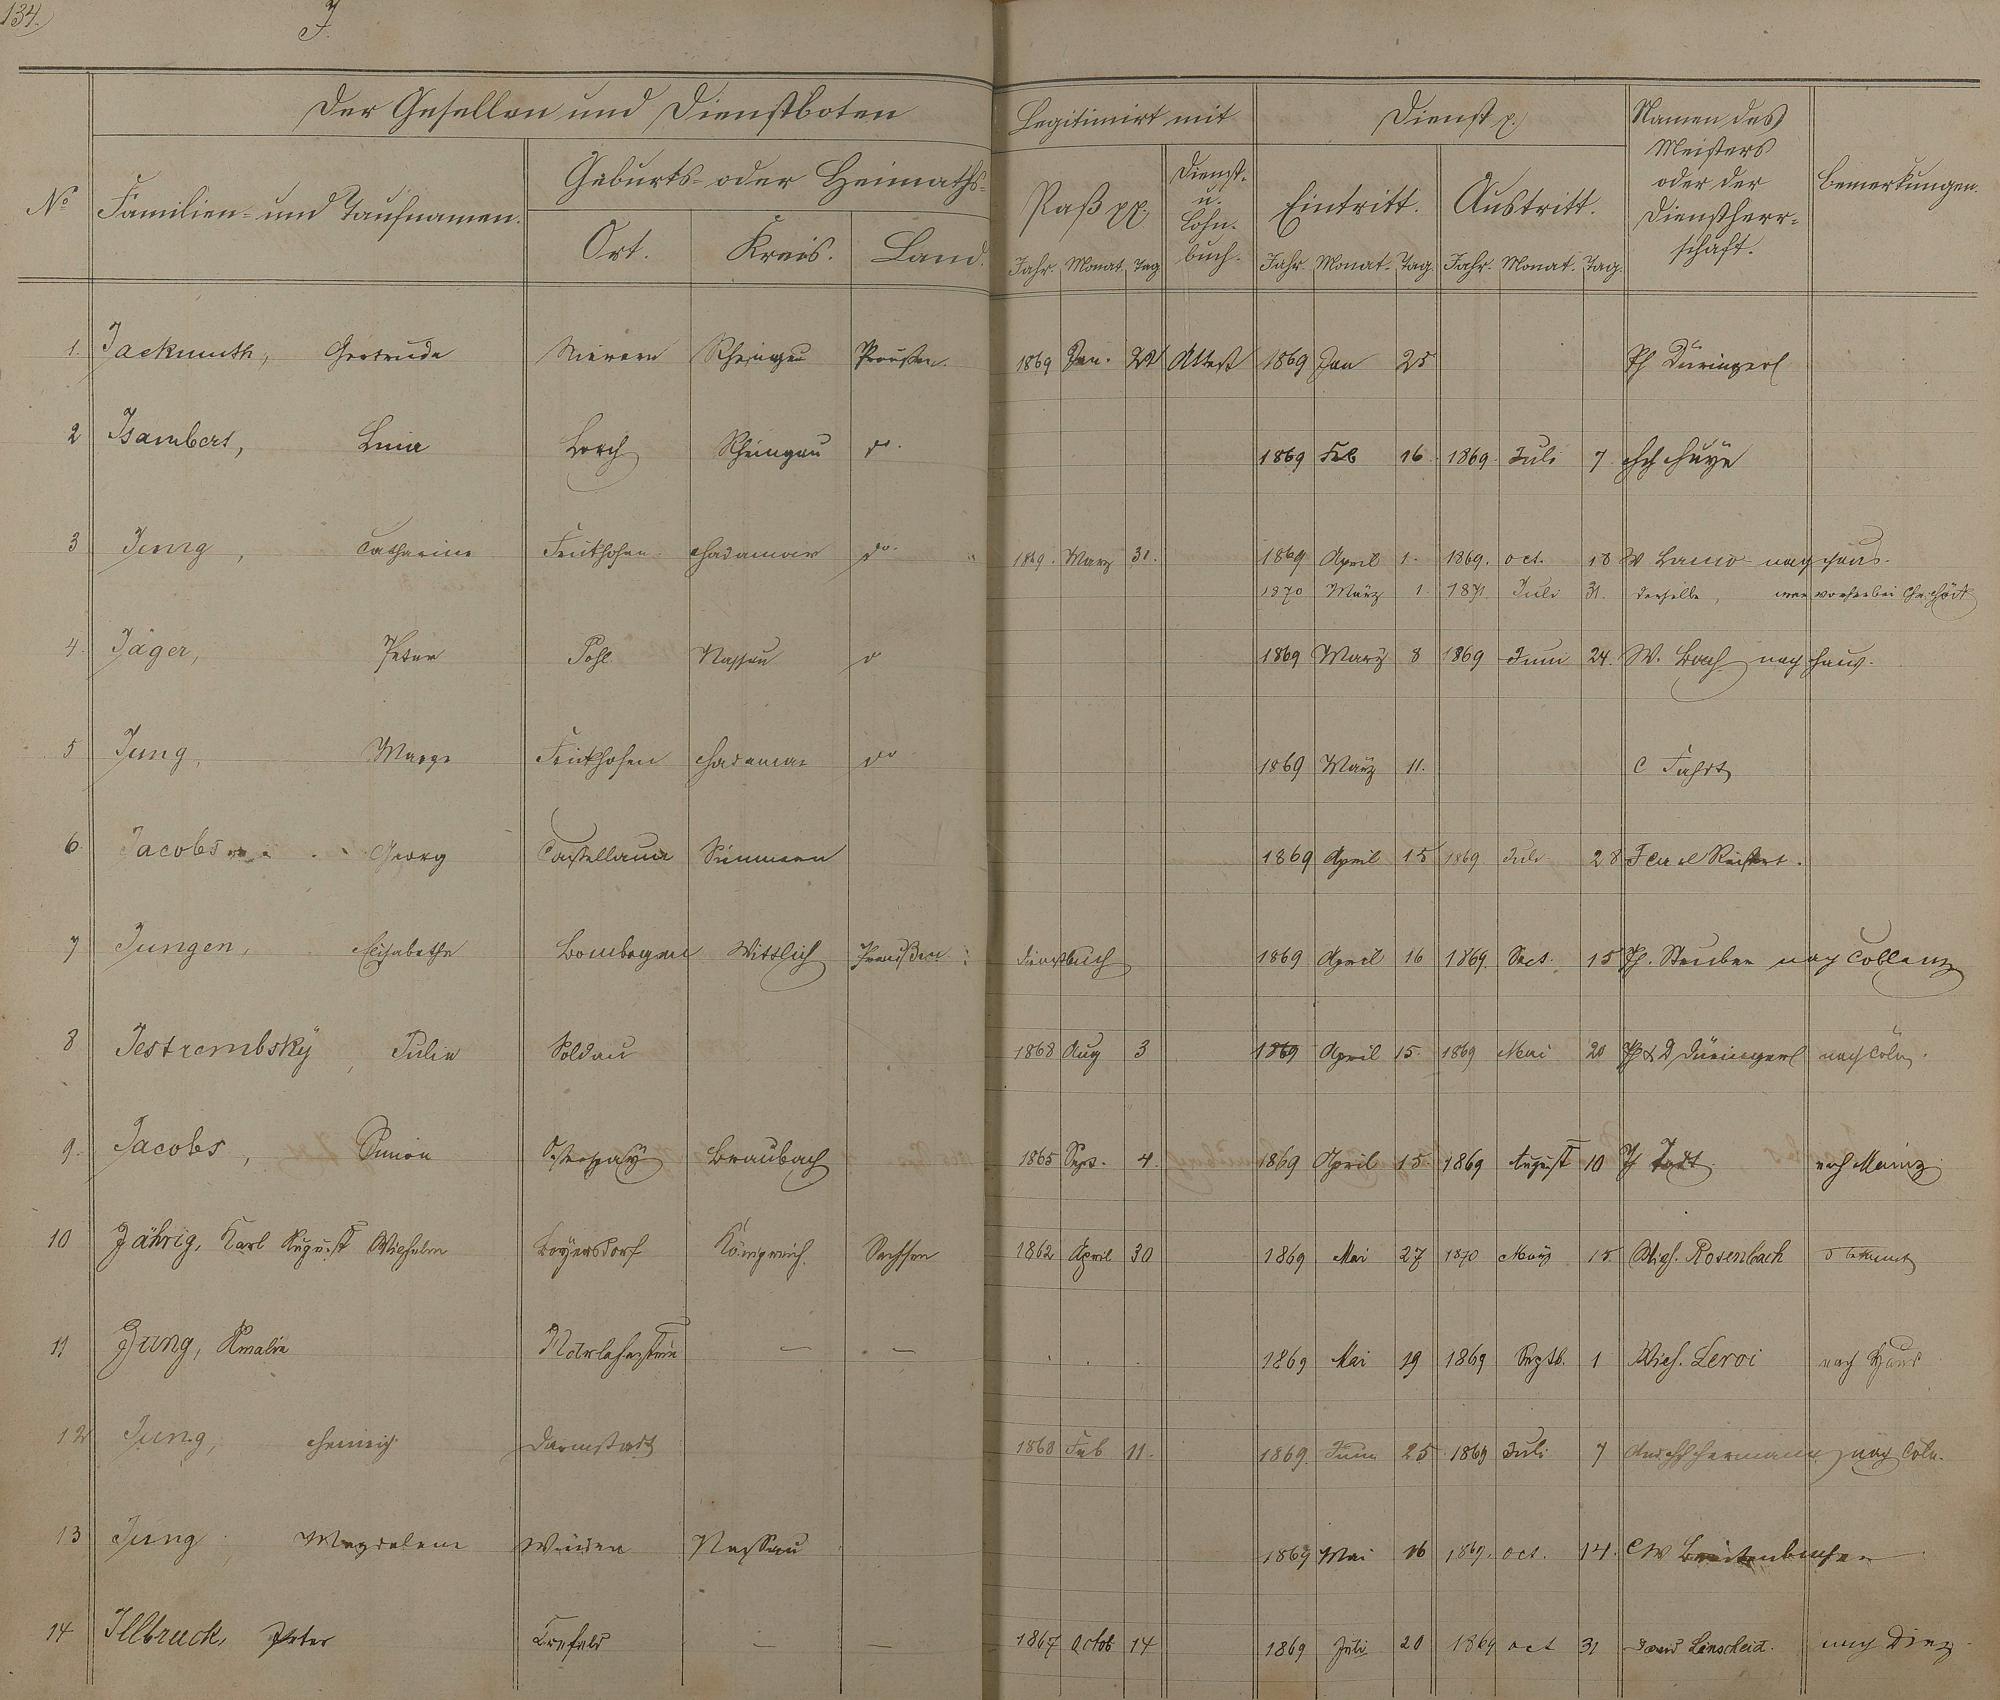 134.
J.
Der Gesellen und Dienstboten
Legitimirt mit
Dienst p.
Namen des Meisters oder der Dienstherrschaft.
Bemerkungen.
No
Familien- und Taufnamen.
Geburts- oder Heimaths-
Ort. Kreis. Land.
Paß pp.
Dienst- u. Lohn- buch.
Eintritt. Austritt.
Jahr. Monat Tag Jahr. Monat. Tag. Jahr. Monat. Tag.
1. Jackmuth, Gertrude Rheingau Preußen. 1869 Jan. 22 Attest 1869 Jan 25 Ph Düringer
2 Isambert, Lina Lorch Rheingau do. 1869 Feb 16 1869 Juli 7
3 Jung, Catharine Frickhofen Hadamar do. 1869. März 31. 1869 April 1. 1869. Oct. 18 W nach Haus.
1870 März 1. 1871 Juli 31. derselbe, war vorher bei
4. Jäger, Peter Pohl Nassau d 1869 März 8 1869 Juni 24. W. Bach nach Haus.
5 Jung, Marge Frickhofen Hadamar do 1869 März 11. C
6. Jacobs Georg Castellaun Simmern 1869 April 15 1869 Juli 28
7 Jungen, Elisabethe Bombogen Wittlich Preußen Dienstbuch 1869 April 16 1869. 15 Ph. Steuber nach Coblenz
8 Jestrembsky, Julie Soldau 1868 Aug 3 1869 April 15. 1869 Mai 20 Ph & D Düringer nach Cöln.
9. Jacobs, Simon Osterspay Braubach 1865 Sept. 4. 1869 April 15. 1869 August 10 nach Mainz
10 Jährig, Karl August Wilhelm Beyersdorf Königreich. Sachsen 1862 April 30 1869 Mai 27 1870 März 15. Wilh. Rosenbach
11 Jung, Amalie — — 1869 Mai 19 1869 Septb. 1 Wilh. Leroi nach Haus
12 Jung, Heinrich Darmstadt 1868 Feb 11. 1869. Juni 25 1869 Juli 7 nach Cöln.
13 Jung, Magdalene Winden Nassau 1869 Mai 16 1869. Oct. 14. CW Breitenbucher
14 Illbruck, Peter Crefeld — — 1867 Octob 14 1869 Juli 20 1869 Oct 31 Linscheid. nach Diez